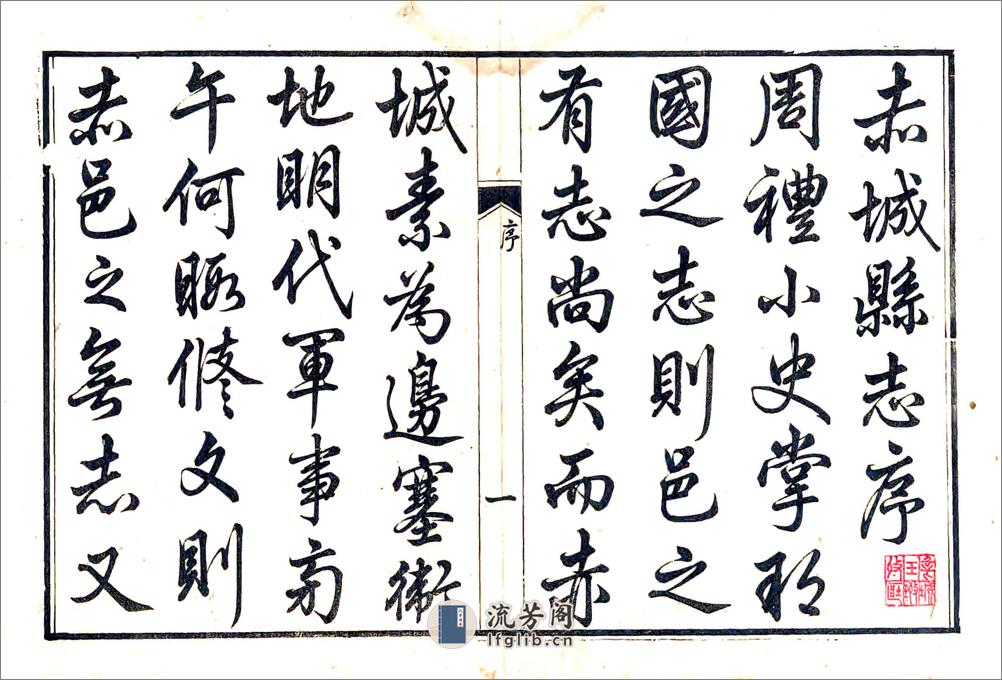 赤城縣志序
周禮小史掌邦
國之志則邑之
有志尚矣而赤
城素為邊塞衝
地明代軍事旁
午何暇修文則
赤邑之無志又
序
一
流芳阁
lfglib.cn